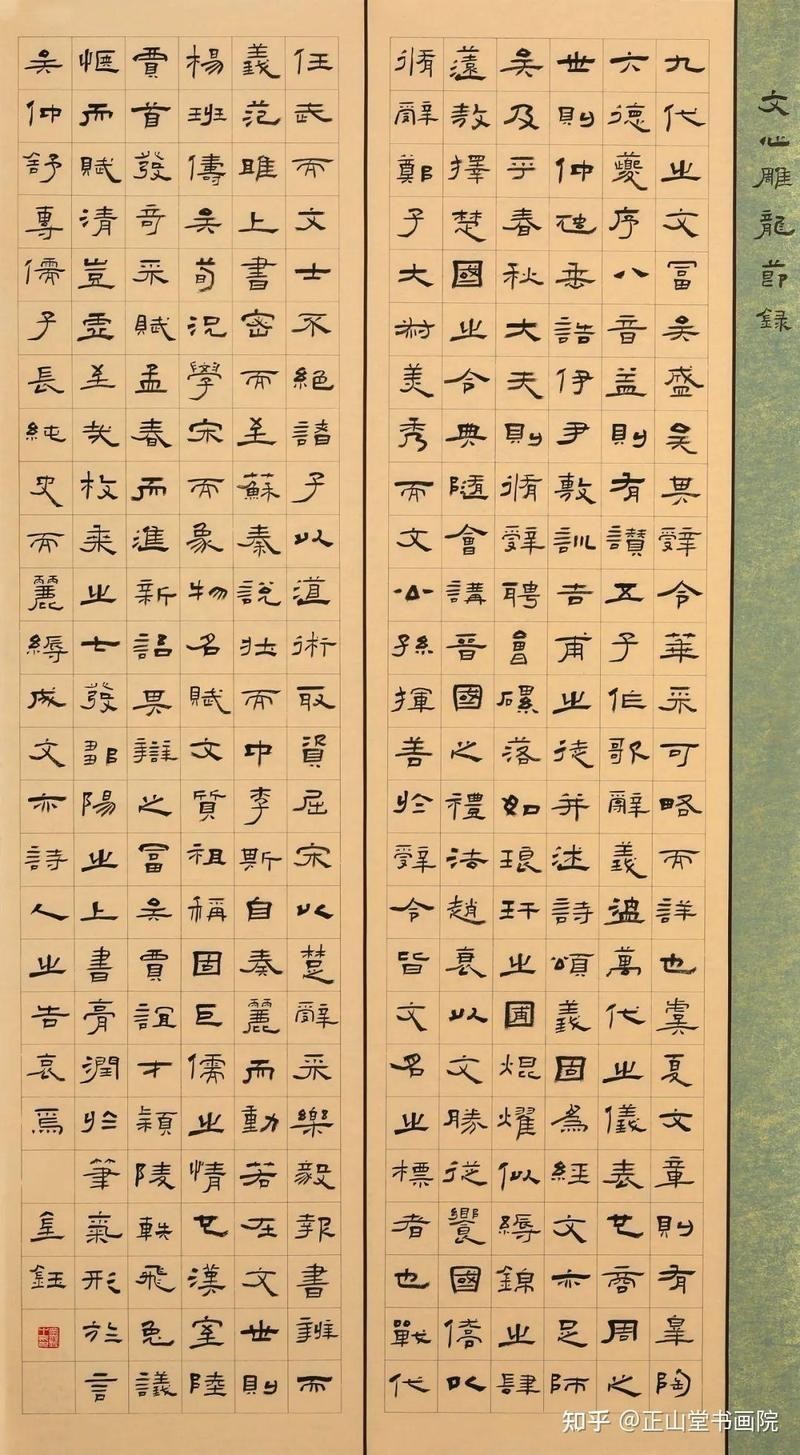 文心雕龍節録
九代之文富矣盛矣其辭令華采可略而詳也虞夏文章則有皋陶
六德夔序八音益則有讃五子作歌辭義温萬代之儀表也商周之
世則仲虺垂誥伊尹敷訓吉甫之徒并述詩頌義固爲經文亦足師
矣及乎春秋大夫則脩辭聘會磥落如琅玕之圃焜燿似縟錦之肆
薳敖擇楚國之令典隨會講晉國之禮法趙衰以文勝從饗國僑以
脩辭鄭子大叔美秀而文公孫揮善於辭令皆文名之標者也戰代
任武而文士不絕諸子以道術取資屈宋以楚辭采樂毅報書辨而
義范雎上書密而至蘇秦說壯而中李斯自奏麗而動若在文世則
楊班儔矣荀況學宗而象物名賦文質祖稱固巨儒之情也漢室陸
賈首發奇采賦孟春而進新詔其辯之富矣賈誼才穎陵軼飛兔議
愜而賦清豈虛至哉枚乘之七發鄒陽之上書膏潤於筆氣形於言
矣仲舒專儒子長純史而麗縟成文亦詩人之告哀焉 金鈺
知乎 @正山堂书画院